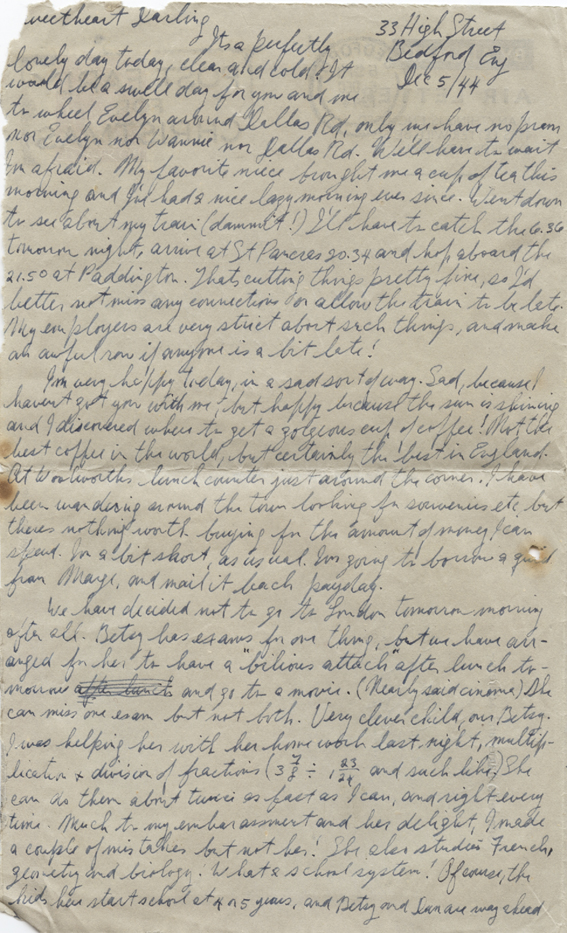 Sweetheart Darling
33 High Street
Bedford Eng
Dec 5/44
It's a perfectly
lovely day today, clear and cold! It
would be a swell day for you and me
to wheel Evelyn around Dallas Rd, only we have no pram
nor Evelyn nor Wannie nor Dallas Rd. We'll have to wait
I'm afraid. My favorite niece brought me a cup of tea this
morning and I've had a nice lazy morning ever since. Went down
to see about my train (dammit!) I'll have to catch the 6.36
tomorrow night, arrive at St Pancras 20.34 and hop aboard the
21.50 at Paddington. Thats cutting things pretty fine, so I'd
better not miss any connections or allow the train to be late.
My employers are very strict about such things, and make
an awful row if anyone is a bit late!
I'm very happy today, in a sad sort of way. Sad, because I
haven't got you with me, but happy because the sun is shining
and I discovered where to get a gorgeous cup of coffee! Not the
best coffee in the world, but certainly the best in England.
At Woolworths lunch counter just around the corner. I have
been wandering around the town looking for souvenirs etc, but
theres nothing worth buying for the amount of money I can
spend. I'm a bit short, as usual. I'm going to borrow a quid
from Marge, and mail it back payday.
We have decided not to go to London tomorrow morning
after all. Betsy has exams for one thing, but we have arr-
anged for her to have a "bilious attack" after lunch to-
morrow after lunch and go to a movie. (Nearly said cinema) She
can miss one exam but not both. Very clever child, our Betsy.
I was helping her with her home work last night, multip-
lication & division of fractions (3 7/8 ÷ 1 23/24 and such like) She
can do them about twice as fast as I can, and right every
time. Much to my embarassment and her delight, I made
a couple of mistakes but not her! She also studies French,
geometry and biology. What a school system! Of course, the
kids here start school at 4 or 5 years, and Betsy and are way ahead